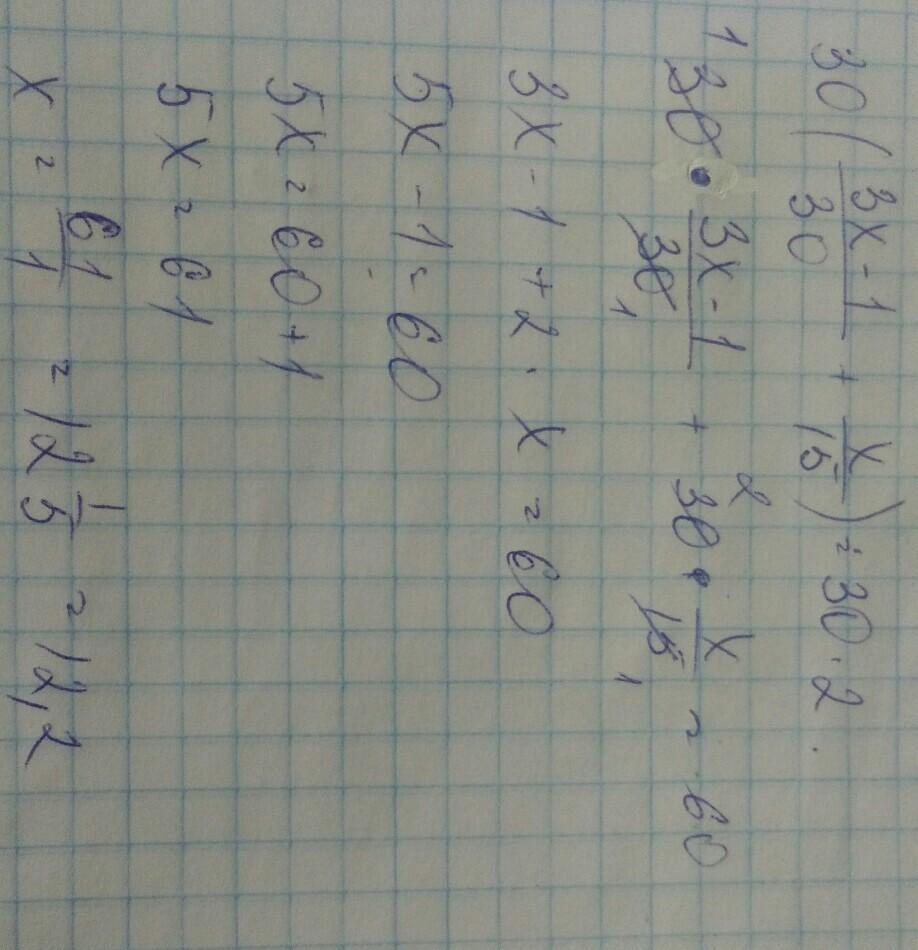 30(3x-1/30 + x/15) = 30·2.
¹30 · 3x-1/30₁ + ²30 · x/15₁ = 60
3x-1+2·x=60
5x-1=60
5x=60+1
5x=61
x = 61/1 = 12 1/5 = 12,2